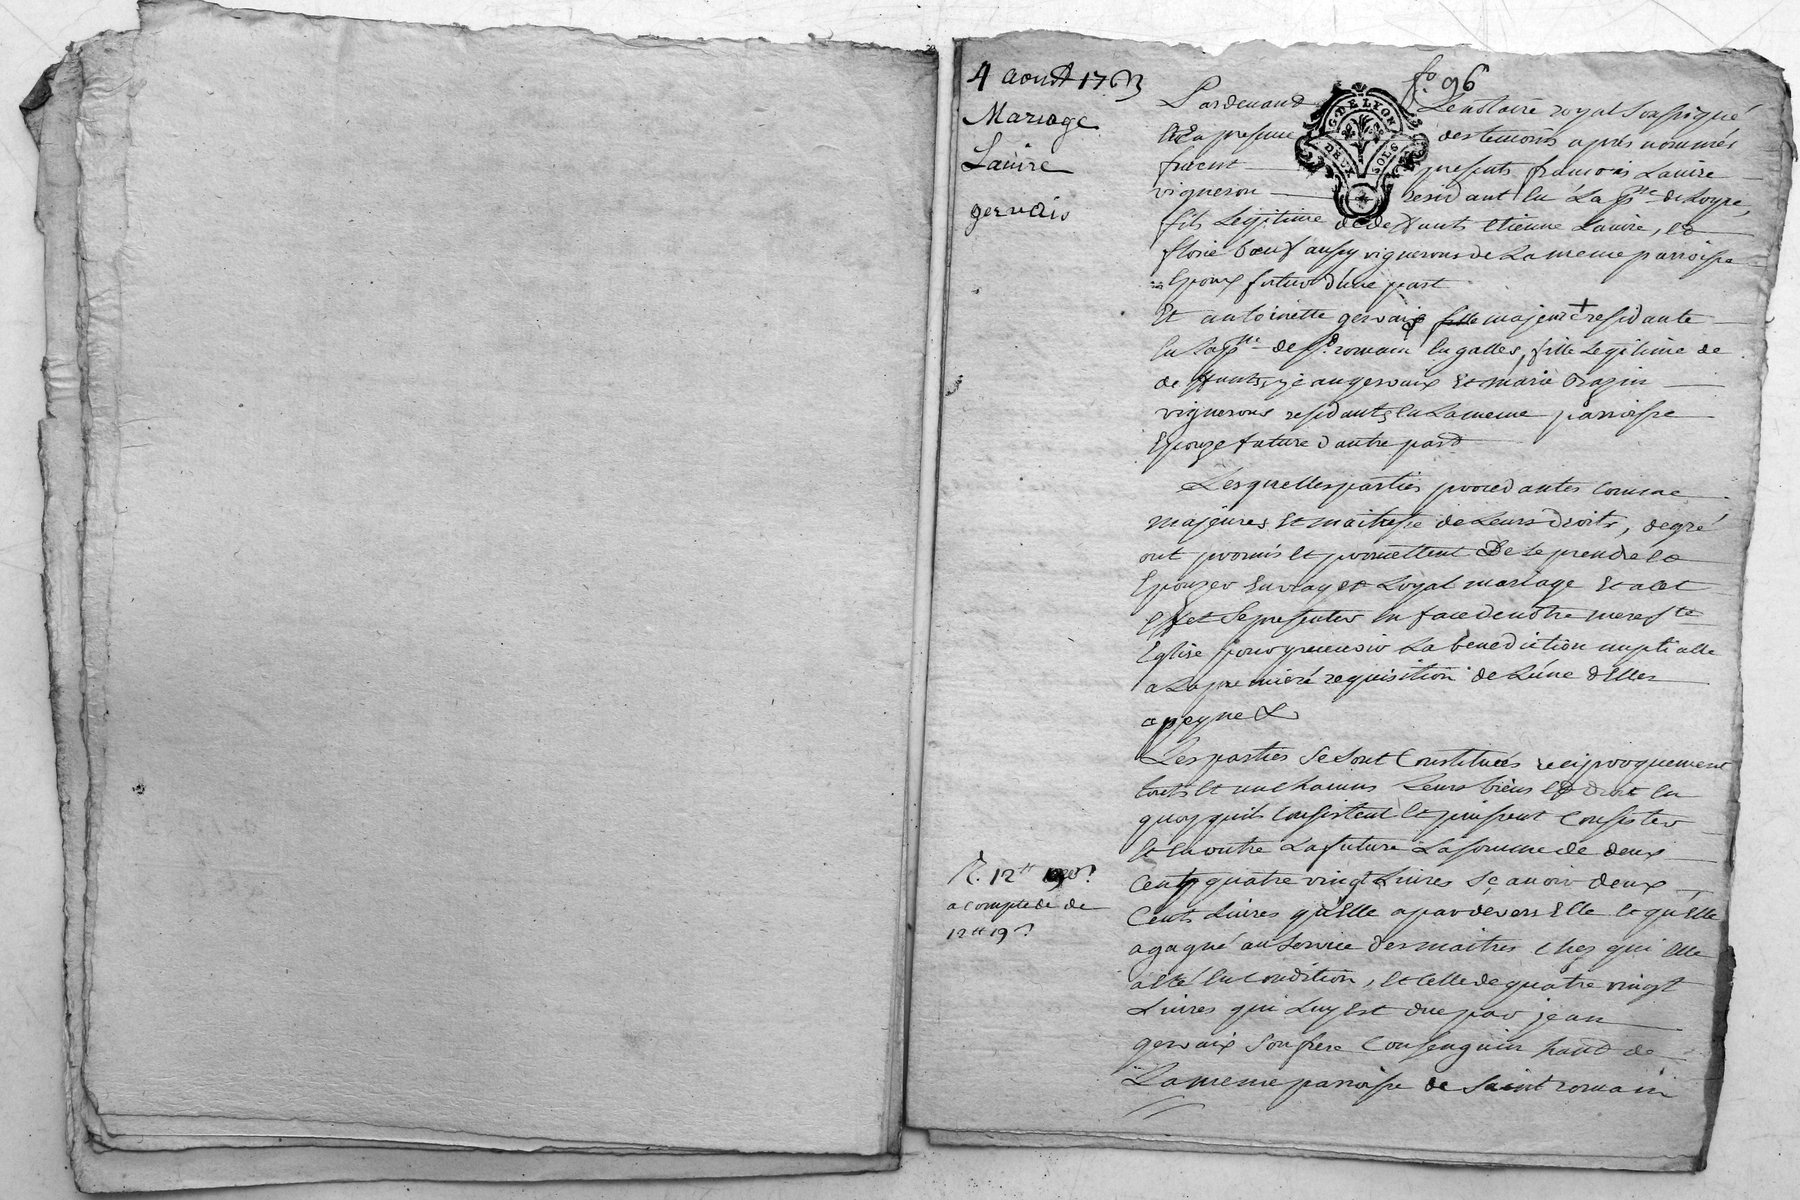 4 aoust 1763
Mariage
Lauire
gervais
f.o 96
G. DE LYON
DEUX SOLS
Pardevand Le notaire royal soussigné
Et En presence des temoins apres nommés
furent presents francois Lauire
vigneron residant en La psse de Loyre,
fils Legitime de deffunts etienne Lauire, et
florie bœuf aussy vignerons de La meme parroisse
Epoux futur d'une part
Et antoinette gervaix majeure residante
en la psse de st. romain en galles, fille Legitime de
deffunts jean gervaix et marie Bazin
vignerons residants en La meme parroisse
Epouze future d'autre part
Lesquelles parties procedantes comme
majeures et maitresse de Leurs droits, de gré
ont promis et promettent De se prendre et
Epouzer en vray et Loyal mariage et a cet
effet se presenter en face de notre mere ste
Eglise pour y recevoir La benediction nuptialle
a La premiere requisition de L'une d'Elles
a peyne &
Les parties se sont Constituées reciproquement
touts et un chacuns Leurs biens et droit en
quoy quils consistent et puissent Consister
et en outre La future La somme de deux
Cents quatre vingt Livres sçauoir deux
Cents Livres qu'Elle a par devers Elle et qu'Elle
a gagné au service des maitres chez qui elle
a été En condition, et celle de quatre vingt
Livres qui Luy est due par jean
gervaix son frere Consenguin hand de
La meme parroisse de Saint romain
R. 12tt
a compte de de
12tt 19s